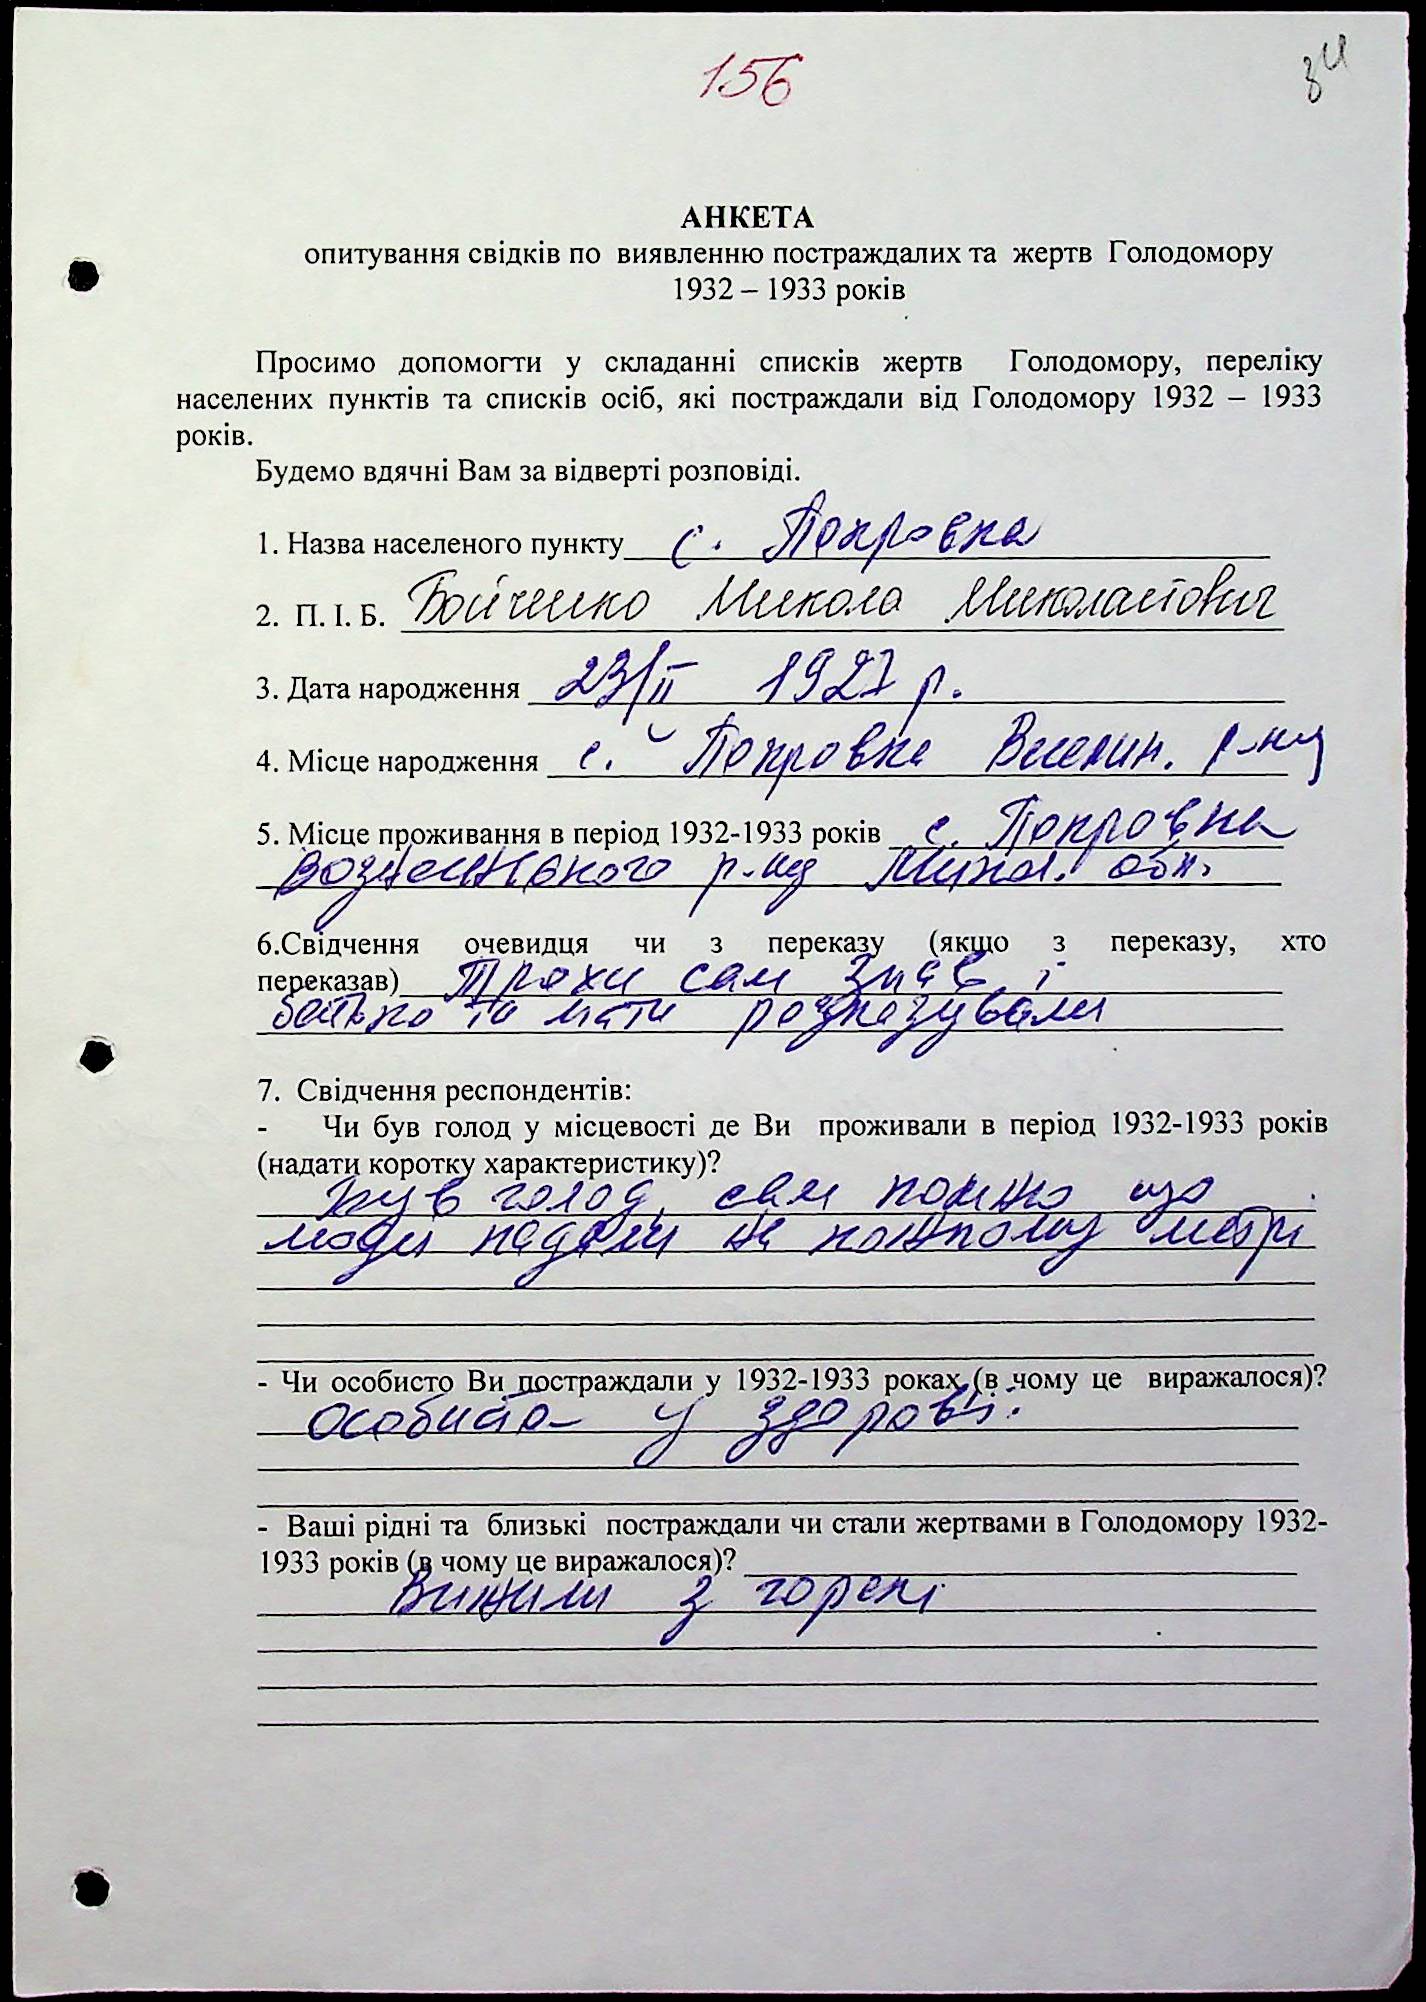 156
34
АНКЕТА
опитування свідків по виявленню постраждалих та жертв Голодомору
1932 – 1933 років
Просимо допомогти у складанні списків жертв Голодомору, переліку
населених пунктів та списків осіб, які постраждали від Голодомору 1932 – 1933
років.
Будемо вдячні Вам за відверті розповіді.
1. Назва населеного пункту с. Покровка
2. П. І. Б. Бойченко Микола Миколайович
3. Дата народження 23/II 1927 р.
4. Місце народження с. Покровка Веселин. р-ну
5. Місце проживання в період 1932-1933 років с. Покровка
Вознесенського р-ну Микол. обл.
6.Свідчення очевидця чи з переказу (якщо з переказу, хто
переказав) Трохи сам знав і
батько та мати розказували
7. Свідчення респондентів:
- Чи був голод у місцевості де Ви проживали в період 1932-1933 років
(надати коротку характеристику)?
Був голод, сам помню що
люди падали на кожному метрі
- Чи особисто Ви постраждали у 1932-1933 роках (в чому це виражалося)?
особисто у здоровї.
- Ваші рідні та близькі постраждали чи стали жертвами в Голодомору 1932-
1933 років (в чому це виражалося)?
Вижили з горем